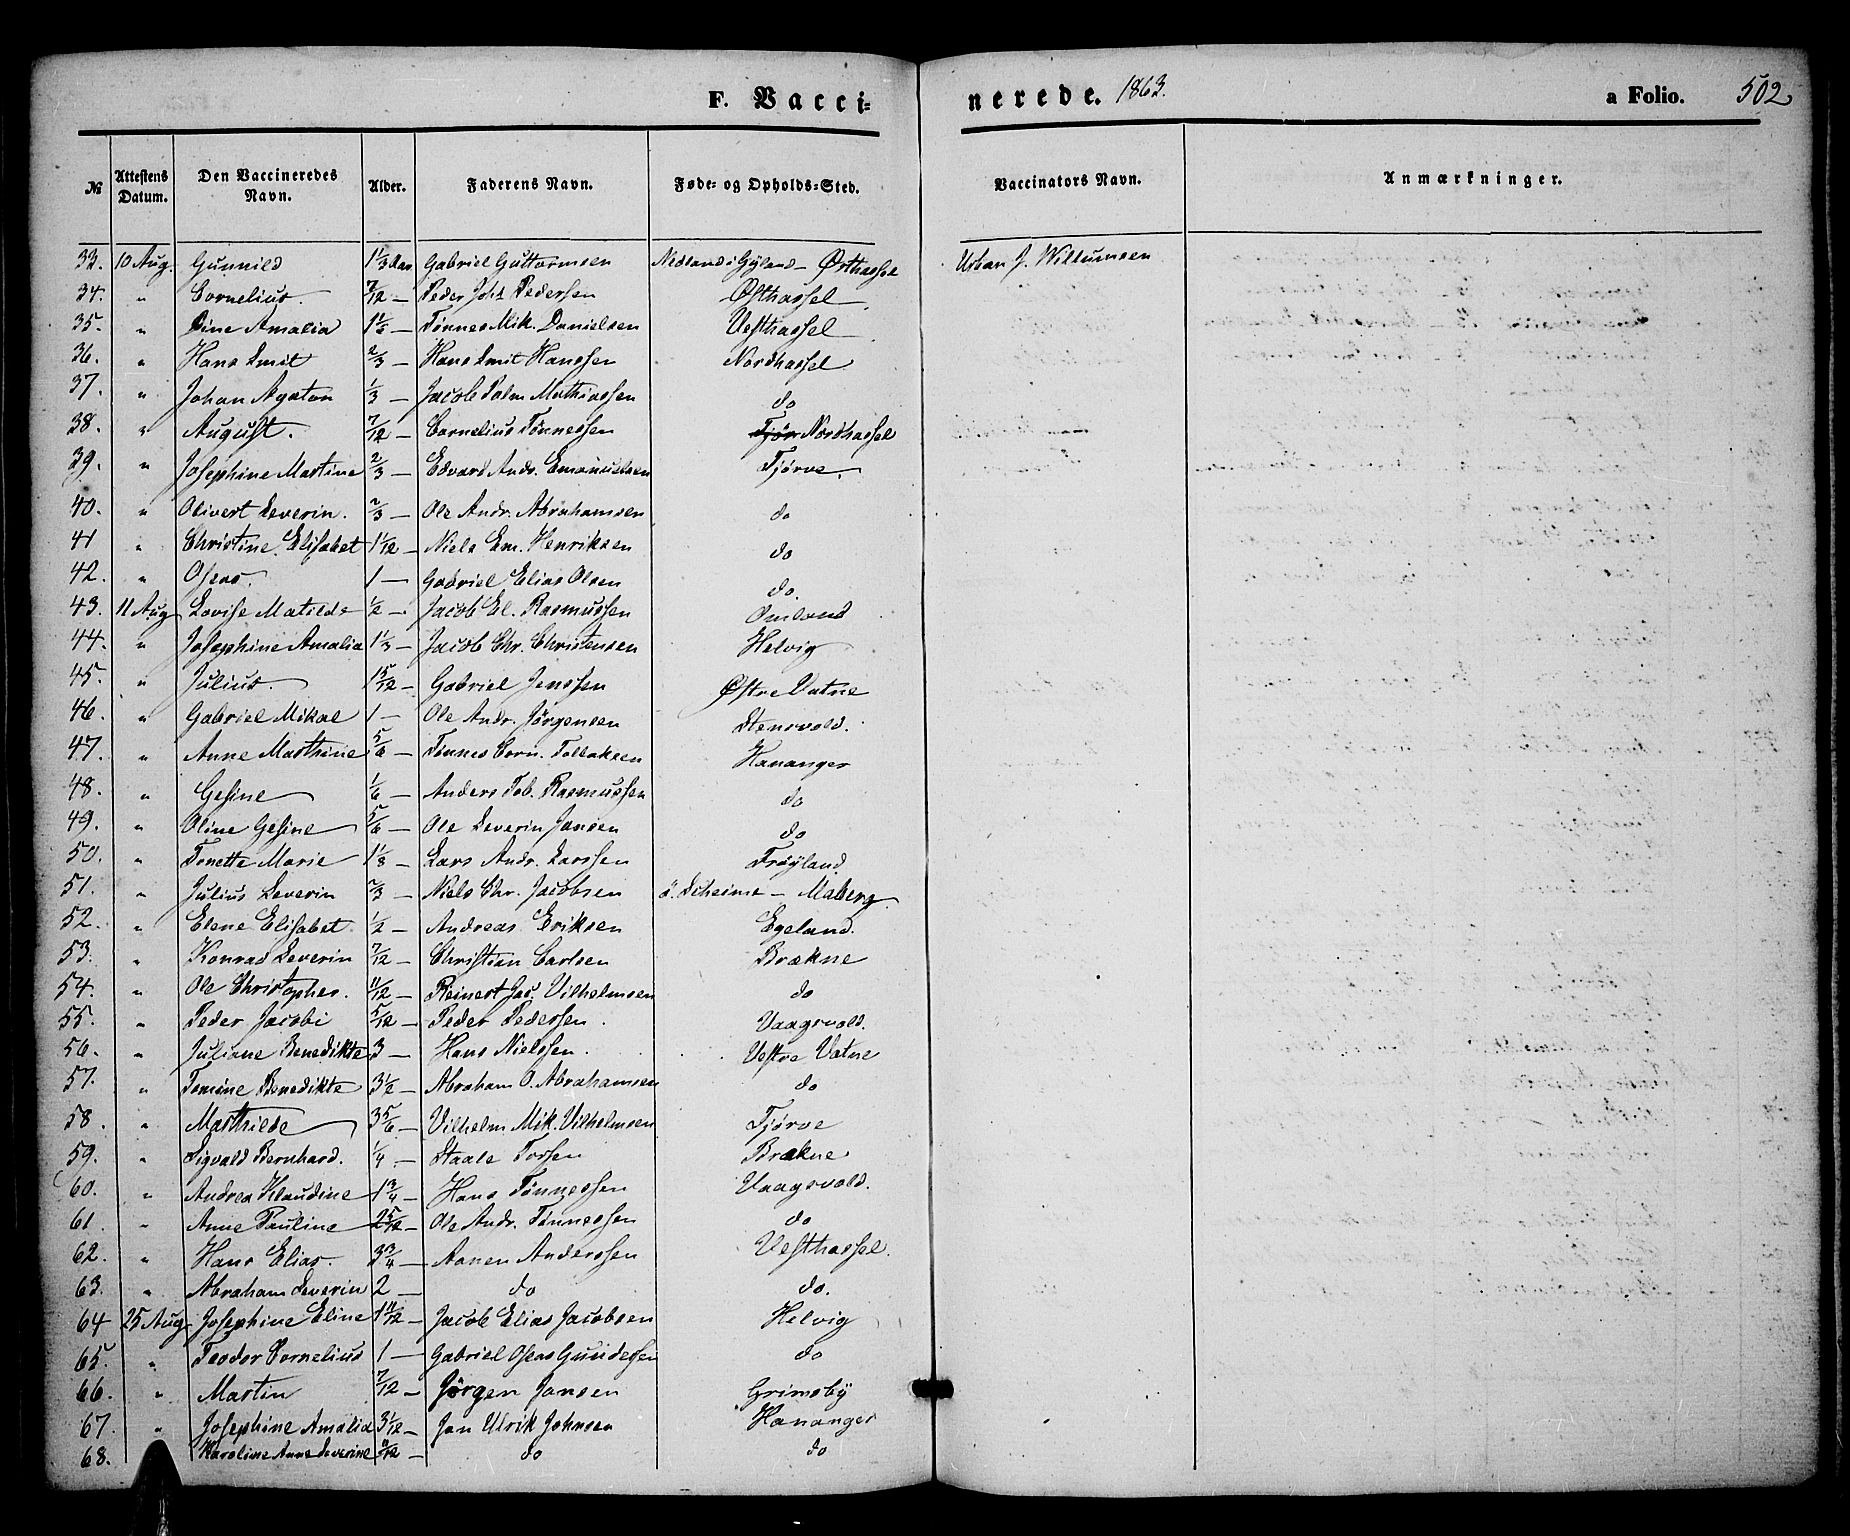 F. Vacci=nerede. 1863. a Folio. 502
№ | Attestens Datum. | Den Vaccineredes Navn. | Alder. | Faderens Navn. | Føde- og Opholds-Sted. | Vaccinators Navn. | Anmærkninger.
33. 10 Aug. Gunnild 1 1/3 Aar Gabriel Guttormsen Nedland i Gyland – Østhassel Urban J. Willumsen
34. " Cornelius. 7/12 — Peder Joh. Pedersen Østhassel
35. " Sine Amalia 1 1/3 — Tønnes Mik. Danielsen Vesthassel
36. " Hans Smit 2/3 — Hans Smit Hanssen Nordhassel
37. " Johan Agaton 1/3 — Jacob Palm Mathiassen do
38. " August. 7/12 — Cornelius Tønnessen Tjör Nordhassel
39. " Josephine Martine 2/3 — Edvard Andr. Emanuelsen Tjörve
40. " Olivert Severin. 2/3 — Ole Andr. Abrahamsen do
41 " Christine Elisabet 1 1/12 — Niels Em. Henriksen do
42. " Oseas. 1 — Gabriel Elias Olsen do.
43. 11 Aug Lovise Matilde 1/2 — Jacob El. Rasmussen Omland
44. " Josephine Amalia 1 1/3 — Jacob Chr. Christensen Helvig
45. " Julius. 1 5/12 — Gabriel Jenssen Østre Vatne
46. " Gabriel Mikal 1 — Ole Andr. Jørgensen Stensvold.
47. " Anne Marthine 5/6 — Tønnes Corn. Tollaksen Hananger
48. " Gesine 1/6 — Anders Tob. Rasmussen do
49. " Oline Gesine 5/6 — Ole Severin Jansen do
50. " Tonette Marie 1 1/3 — Lars Andr. Larssen Tröyland
51. " Julius Severin 2/3 — Niels Chr. Jacobsen ö. Seheime – Maberg
52. " Elene Elisabet 1/2 — Andreas Eriksen Egeland.
53. " Konrad Severin 7/12 — Christian Carlsen Brækne
54. " Ole Christopher. 11/12 — Reinert Jac. Vilhelmsen do
55. " Peder Jacobi 5/12 — Peder Pedersen. Vaagsvold.
56. " Juliane Benedikte 3 — Hans Nielssen. Vestre Vatne
57. " Tomine Benedikte 3 1/2 — Abraham O. Abrahamsen do
58. " Mathilde 3 5/6 — Vilhelm Mik. Vilhelmsen Tjörve
59. " Sigvald Bernhard. 1/4 — Staale Torsen Brækne
60. " Andrea Klaudine 1 3/4 — Hans Tønnessen Vaagsvold.
61. " Anne Pauline 2 5/12 — Ole Andr. Tønnessen do
62. " Hans Elias. 3 3/4 — Aanen Anderssen Vesthassel.
63. " Abraham Severin 2 — do do.
64 25 Aug Josephine Eline 1 11/12 — Jacob Elias Jacobsen Helvig
65. " Teodor Cornelius 1 — Gabriel Oseas Gundersen do
66. " Martin 7/12 — Jörgen Jansen Grimsby
67. " Josephine Amalia 3 1/12 — Jan Ulrik Johnsen Hananger
68. Karoline Anne Severine /12 — do do